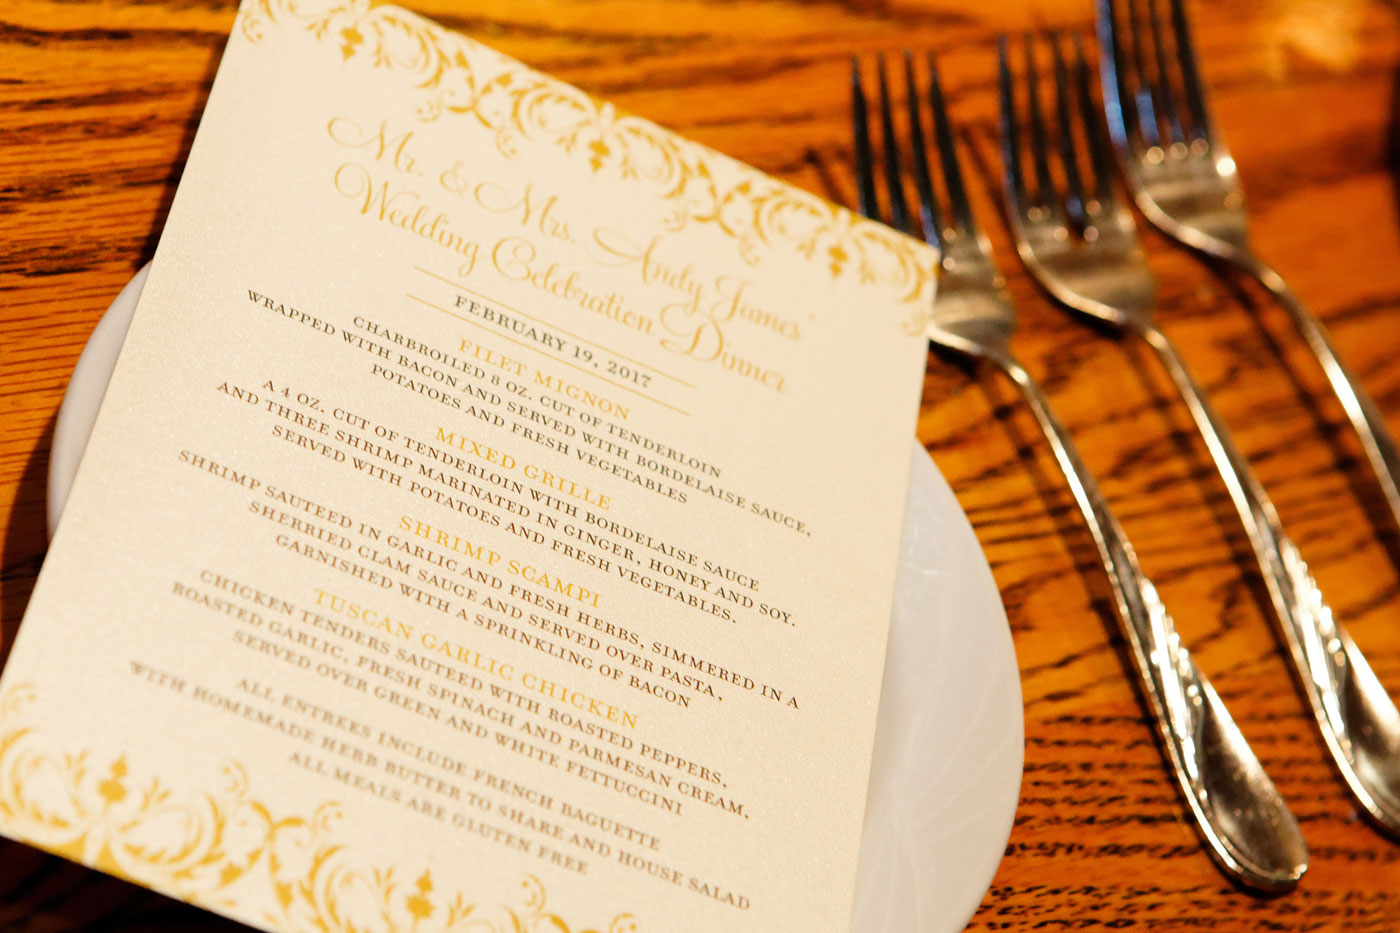 Mr. & Mrs. Andy James'
Wedding Celebration Dinner
FEBRUARY 19, 2017
FILET MIGNON
CHARBROILED 8 OZ. CUT OF TENDERLOIN
WRAPPED WITH BACON AND SERVED WITH BORDELAISE SAUCE,
POTATOES AND FRESH VEGETABLES
MIXED GRILLE
A 4 OZ. CUT OF TENDERLOIN WITH BORDELAISE SAUCE
AND THREE SHRIMP MARINATED IN GINGER, HONEY AND SOY.
SERVED WITH POTATOES AND FRESH VEGETABLES.
SHRIMP SCAMPI
SHRIMP SAUTEED IN GARLIC AND FRESH HERBS, SIMMERED IN A
SHERRIED CLAM SAUCE AND SERVED OVER PASTA,
GARNISHED WITH A SPRINKLING OF BACON
TUSCAN GARLIC CHICKEN
CHICKEN TENDERS SAUTEED WITH ROASTED PEPPERS,
ROASTED GARLIC, FRESH SPINACH AND PARMESAN CREAM,
SERVED OVER GREEN AND WHITE FETTUCCINI
ALL ENTREES INCLUDE FRENCH BAGUETTE
WITH HOMEMADE HERB BUTTER TO SHARE AND HOUSE SALAD
ALL MEALS ARE GLUTEN FREE